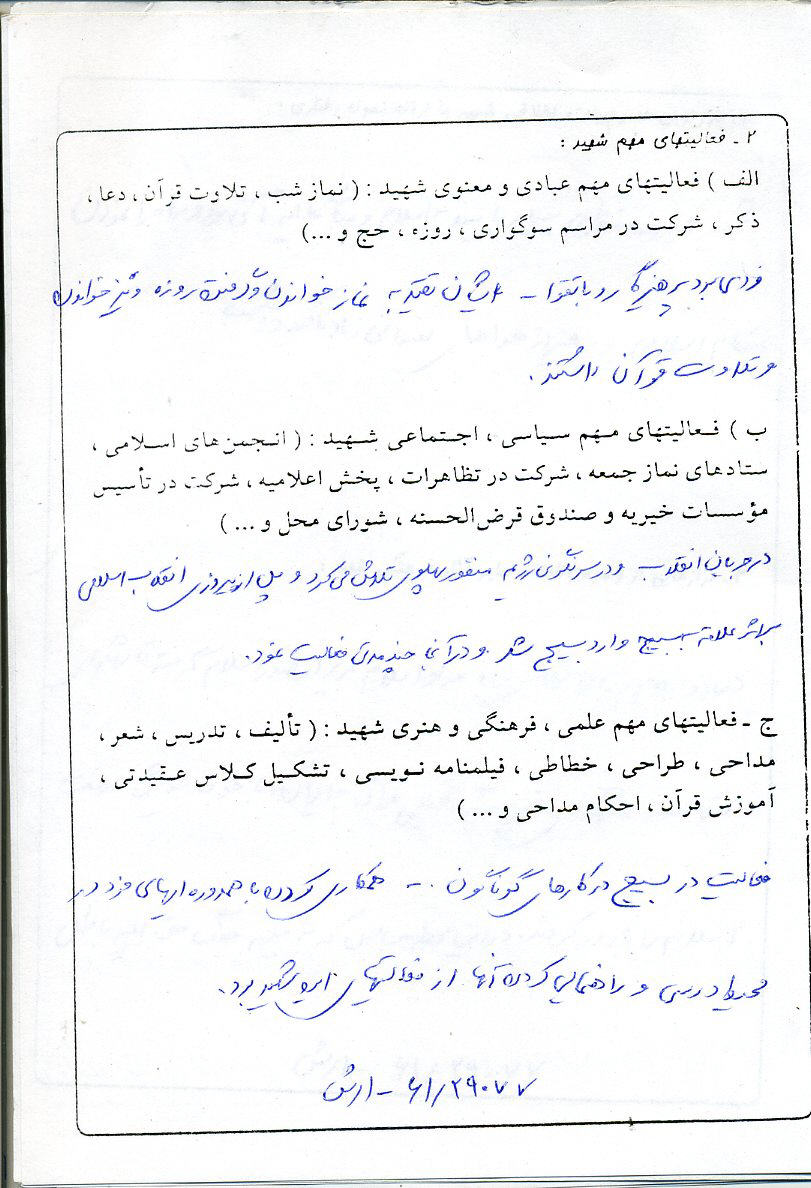 ۲ ـ فعالیتهای مهم شهید :
الف ) فعالیتهای مهم عبادی و معنوی شهید : ( نماز شب ، تلاوت قرآن ، دعا ،
ذکر ، شرکت در مراسم سوگواری ، روزه ، حج و ...)
فردی بود پرهیزگار و با تقوا – ایشان تقید به نماز خواندن و گرفتن روزه و نیز خواندن
و تلاوت قرآن داشتند .
ب ) فعالیتهای مهم سیاسی ، اجتماعی شهید : ( انجمن های اسلامی ،
ستادهای نماز جمعه ، شرکت در تظاهرات ، پخش اعلامیه ، شرکت در تأسیس
مؤسسات خیریه و صندوق قرض الحسنه ، شورای محل و ... )
در جریان انقلاب و در سرنگونی رژیم منفور پهلوی تلاش می کرد و پس از پیروزی انقلاب اسلامی
بر اثر علاقه به بسیج وارد بسیج شد و در آنجا چند مدتی فعالیت نمود .
ج ـ فعالیتهای مهم علمی ، فرهنگی و هنری شهید : ( تألیف ، تدریس ، شعر ،
مداحی ، طراحی ، خطاطی ، فیلمنامه نویسی ، تشکیل کلاس عقیدتی ،
آموزش قرآن ، احکام مداحی و ... )
فعالیت در بسیج در کارهای گوناگون . – همکاری کردن با هم دوره ایهای خود در
محیط درسی و راهنمایی کردن آنها از فعالیتهای این شهید بود .
۶۱/۲۹۰۷۷ – ارتش